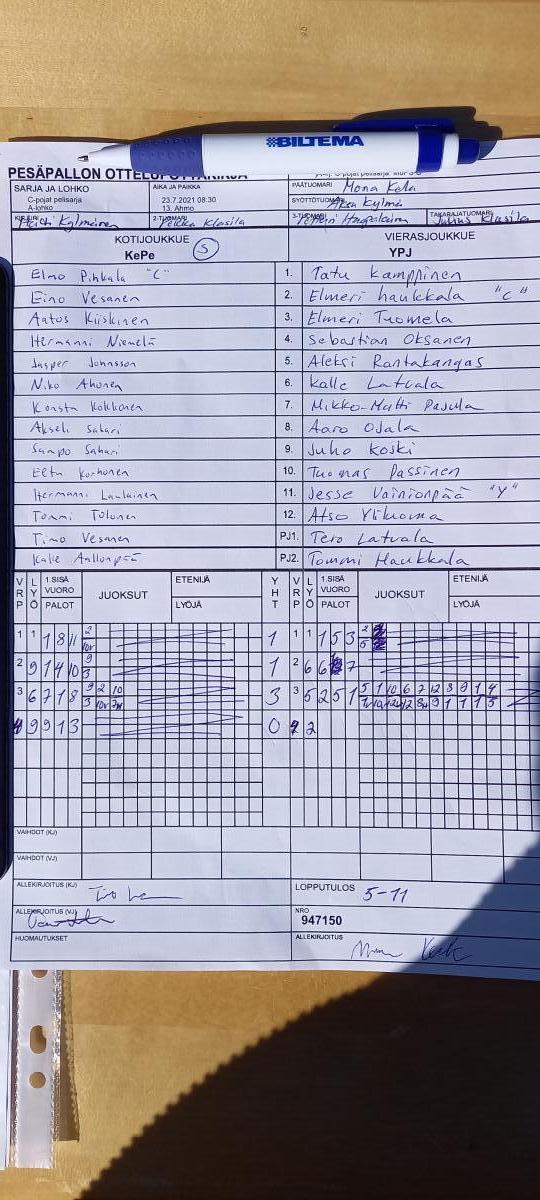 BILTEMA
PESÄPALLON OTTELUPÖYTÄKIRJA
SARJA JA LOHKO
C-pojat pelisarja
A-lohko
AIKA JA PAIKKA
23.7.2021 08:30
13. Ahmo
PÄÄTUOMARI Mona Kela
SYÖTTÖTUOMARI Kylmä
2-TUOMARI Pekka Klasila
3-TUOMARI
TAKARAJATUOMARI Julius Klasila
KOTIJOUKKUE
KePe S
VIERASJOUKKUE
YPJ
Elmo Pihkala "C" 1. Tatu Kamppinen
Eino Vesanen 2. Elmeri haukkala "C"
Aatos Kiiskinen 3. Elmeri Tuomela
Hermanni Niemelä 4. Sebastian Oksanen
Jasper Johnsson 5. Aleksi Rantakangas
Niko Ahonen 6. Kalle Latvala
Konsta Kokkonen 7. Mikko-Matti Pasula
Akseli Sahari 8. Aaro Ojala
Sampo Sahari 9. Juho Koski
Eetu Korhonen 10. Tuomas Passinen
Hermanni Laulainen 11. Jesse Vainionpää "V"
Tommi Tolonen 12. Atso Ylikoma
Timo Vesanen PJ1. Tero Latvala
Kalle Aallonpää PJ2. Tommi Haukkala
VRP LYÖ 1.SISÄ VUORO PALOT JUOKSUT ETENIJÄ LYÖJÄ YHT VRP LYÖ 1.SISÄ VUORO PALOT JUOKSUT ETENIJÄ LYÖJÄ
1 1 1 8 11 1 1 1 1 5 3
2 9 1 4 10 3 1 2 6 6 7
3 6 7 1 8 3 3 5 2 5 1
4 9 9 1 3 0 2
VAIHDOT (KJ)
VAIHDOT (VJ)
ALLEKIRJOITUS (KJ)
LOPPUTULOS 5-11
ALLEKIRJOITUS (VJ)
NRO
947150
HUOMAUTUKSET
ALLEKIRJOITUS